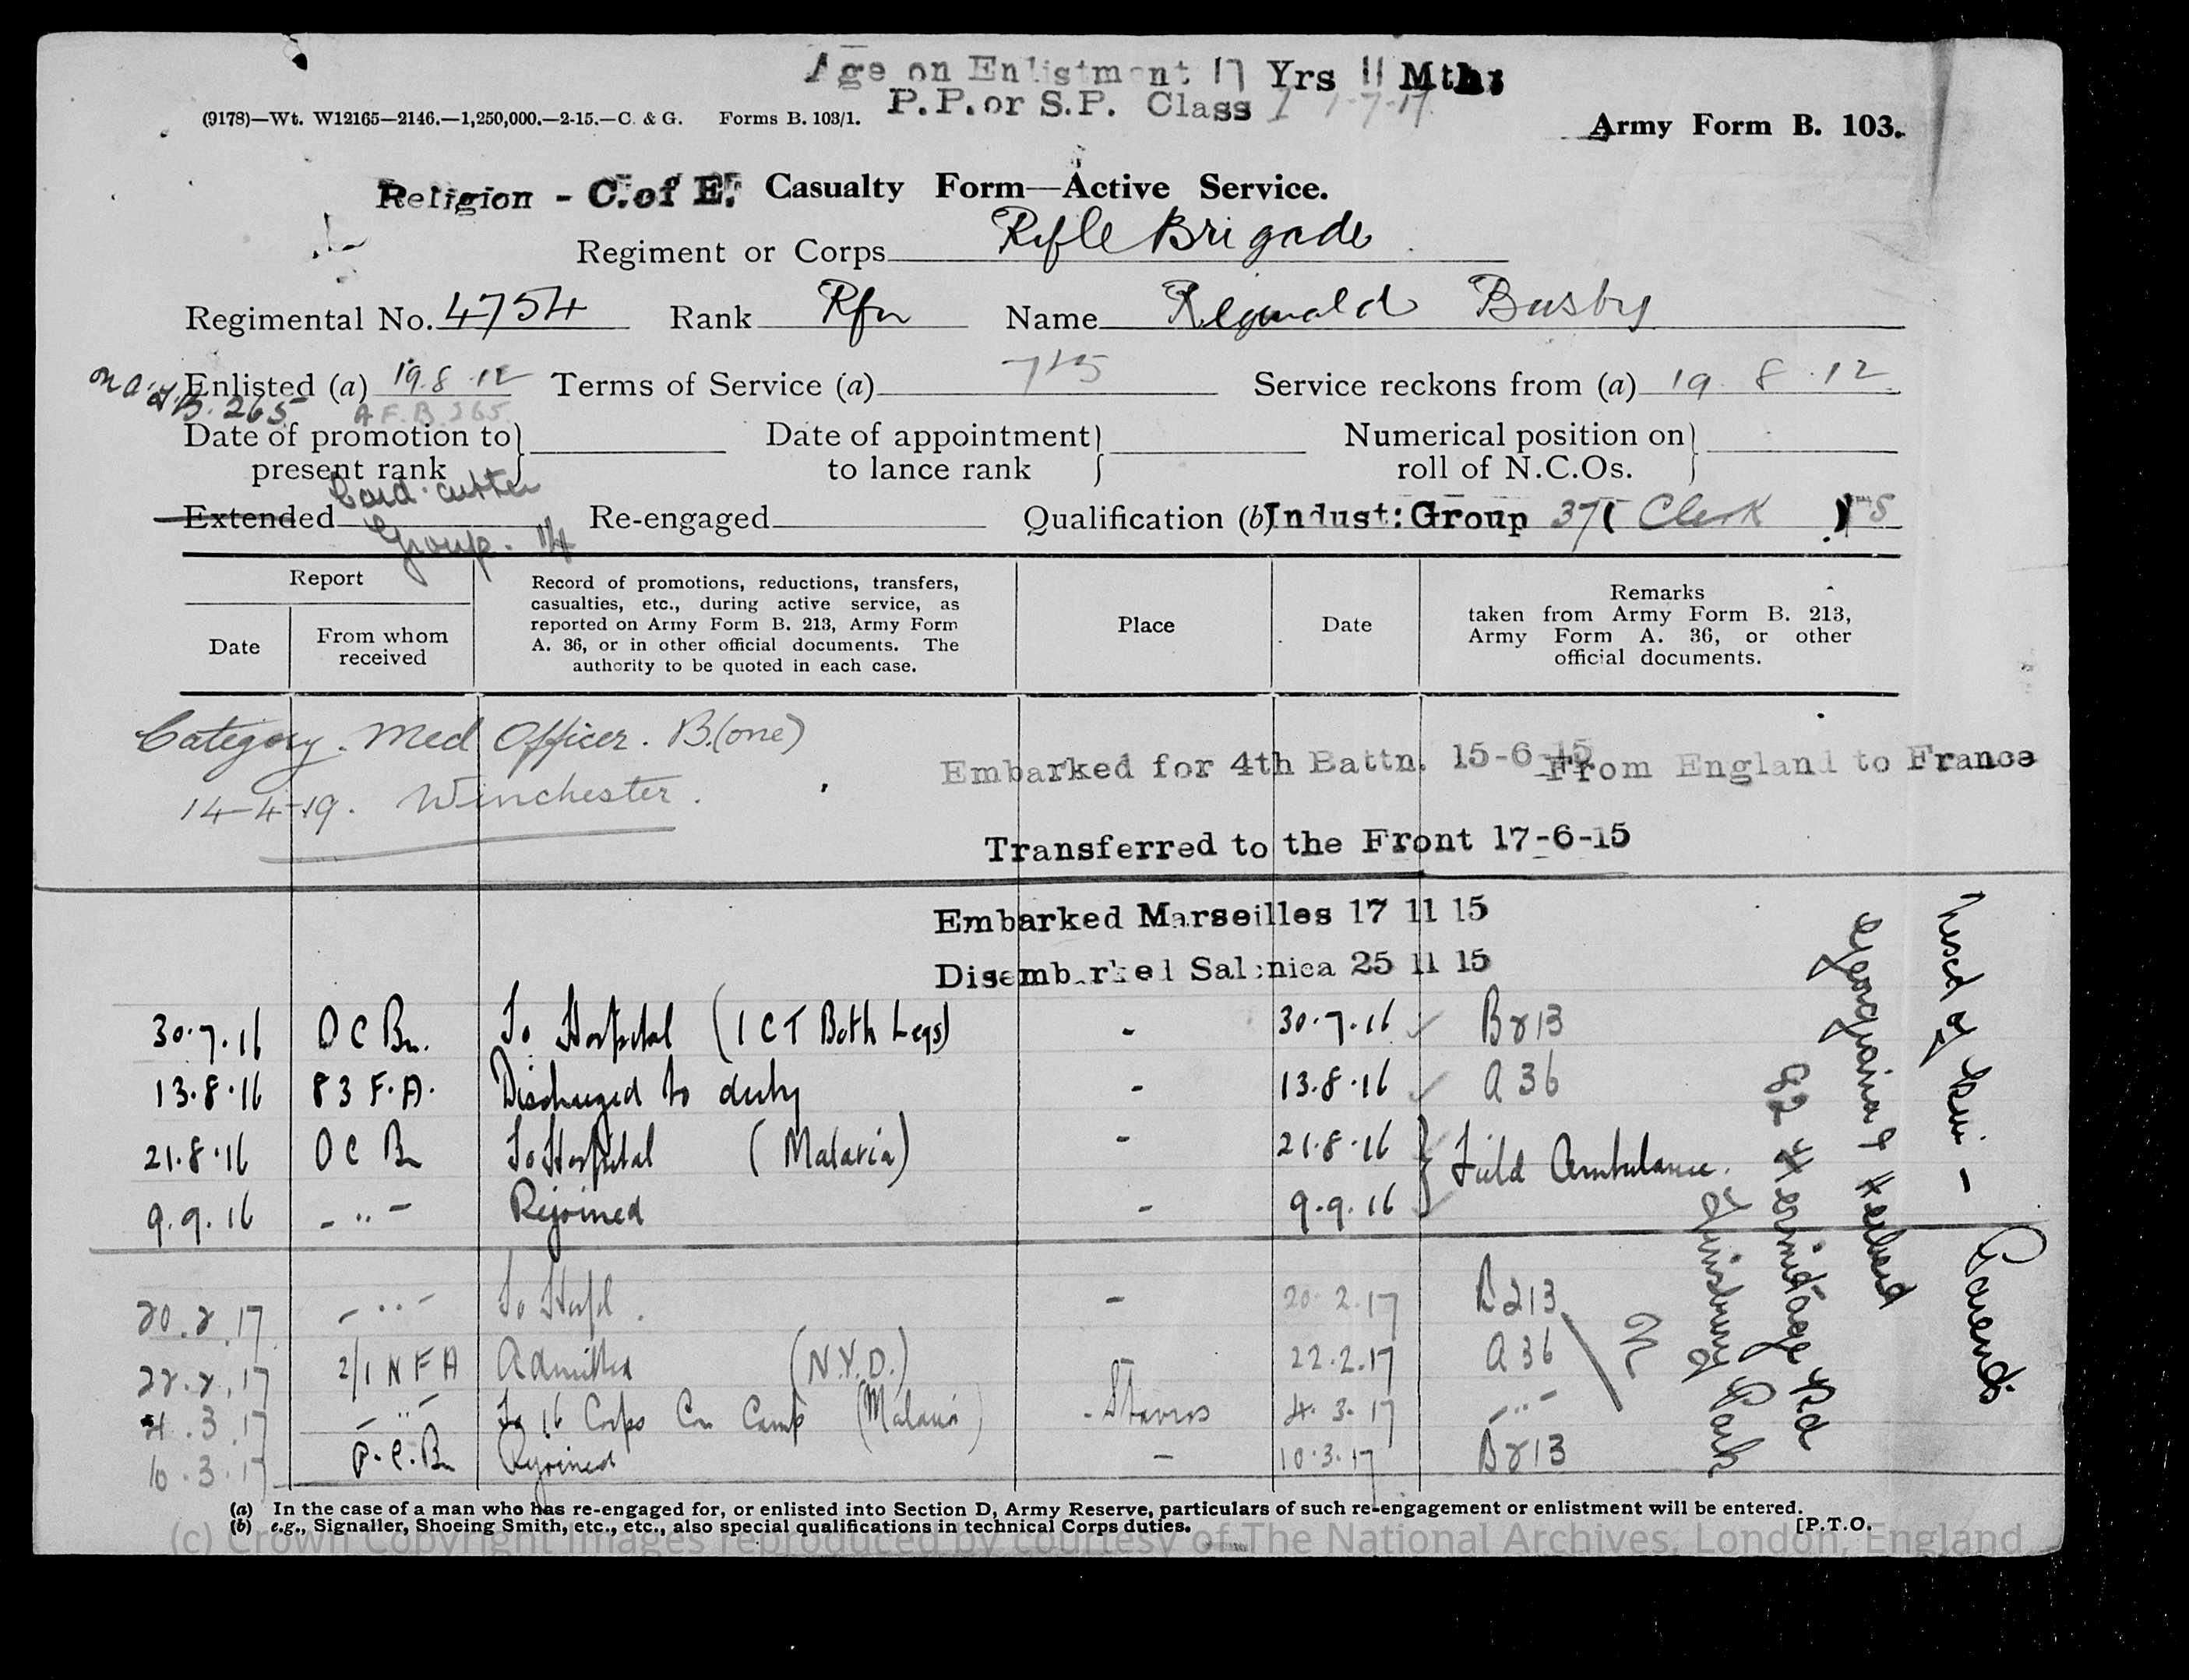 Age on Enlistment 17 Yrs 11 Mths
P.P. or S.P. Class 1 1-7-17
(9178)—Wt. W12165—2146.—1,250,000.—2-15.—C. & G. Forms B. 103/1.
Army Form B. 103.
Religion - C. of E. Casualty Form—Active Service.
Regiment or Corps Rifle Brigade
Regimental No. 4754 Rank Rfn Name Reginald Busby
Enlisted (a) 19.8.12 Terms of Service (a) Service reckons from (a) 19 8 12
A.F.B. 265
Date of promotion to present rank
Date of appointment to lance rank
Numerical position on roll of N.C.Os.
Card-cutter
Extended Re-engaged Qualification (b) Indust: Group 37 ( Clerk )
Group. 14
Report
Date
From whom received
Record of promotions, reductions, transfers,
casualties, etc., during active service, as
reported on Army Form B. 213, Army Form
A. 36, or in other official documents. The
authority to be quoted in each case.
Place
Date
Remarks
taken from Army Form B. 213,
Army Form A. 36, or other
official documents.
Category. Med Officer. B.(one)
14-4-19. Winchester.
Embarked for 4th Battn. 15-6-15 From England to France
Transferred to the Front 17-6-15
Embarked Marseilles 17 11 15
Disembarked Salonica 25 11 15
30.7.16 O C Bn. To Hospital (I C T Both Legs) - 30.7.16 B213
13.8.16 83 F.A. Discharged to duty - 13.8.16 A 36
21.8.16 O C Bn To Hospital (Malaria) - 21.8.16 Field Ambulance.
9.9.16 - " - Rejoined - 9.9.16
20.2.17 - " - To Hospl. - 20.2.17 B213
22.2.17 2/1 N F A Admitted (N.Y.D.) - 22.2.17 A 36
4.3.17 - " - To 16 Corps Con Camp (Malaria) - Stavros 4.3.17 - " -
10.3.17 O.C. Bn Rejoined - 10.3.17 B213
Next of kin - Parents
Georgina & Herbert
82 Hermitage Rd
Finsbury Park
(a) In the case of a man who has re-engaged for, or enlisted into Section D, Army Reserve, particulars of such re-engagement or enlistment will be entered.
(b) e.g., Signaller, Shoeing Smith, etc., etc., also special qualifications in technical Corps duties.
[P.T.O.
(c) Crown Copyright Images reproduced by courtesy of The National Archives, London, England